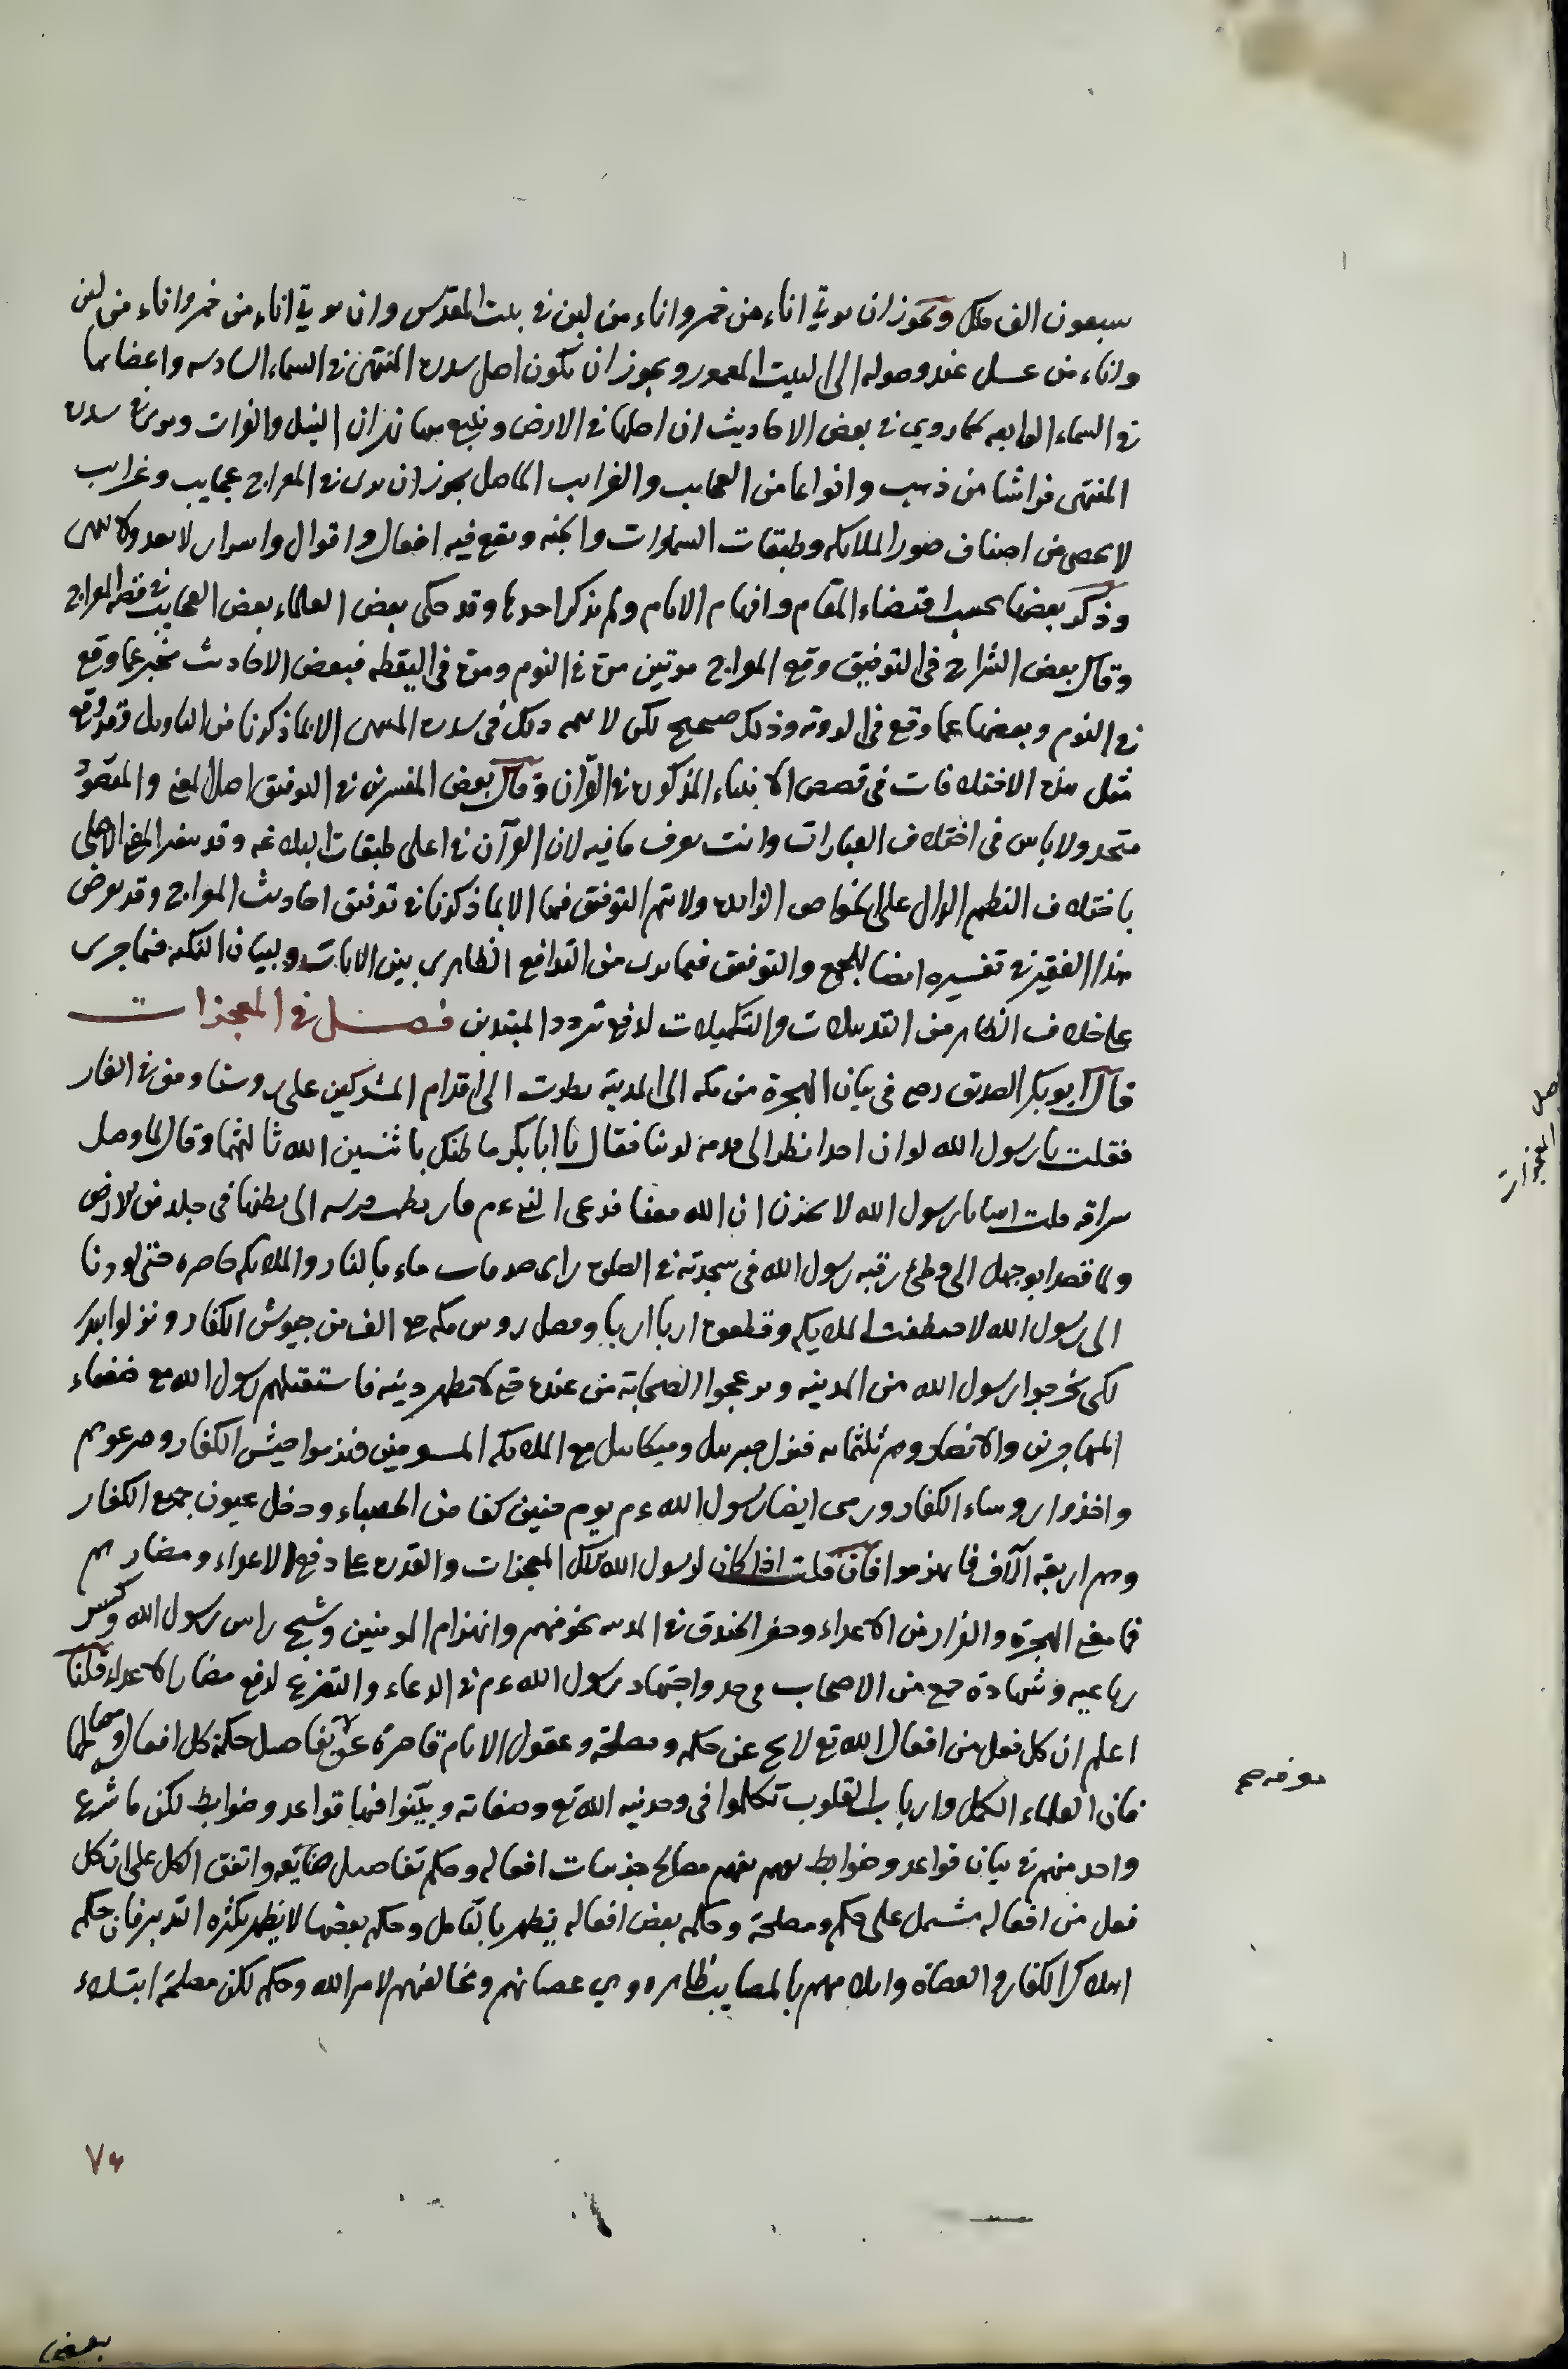 سبعون الف ملك ويجوز ان يوتي اناء من خمر واناء من لبن في بيت المقدس وان يوتي اناء من خمر واناء من لبن
واناء من عسل عند وصوله الى البيت المعمور ويجوز ان يكون اصل سدرة المنتهى في السماء السادسه واعضانها
في السماء السابعه كما روي في بعض الاحاديث ان اصلها في الارض وينبع منها نهران النيل والفرات ويرى في سدرة
المنتهى فراشا من ذهب وانواعا من العجايب والغرايب الحاصل يجوز ان يرى في المعراج عجايب وغرايب
لا يحصى من اصناف صور الملائكه وطبقات السماوات والجنه ويقع فيه افعال واقوال واسرار لا يعد ولا يحصى
وذكر بعضها بحسب اقتضاء المقام وافهام الانام ولم يذكر احدها وقد حكى بعض العلماء بعض العجايب في قصه المعراج
وقال بعض الشراح في التوفيق وقع المعراج مرتين مرة في النوم ومرة في اليقظه فبعض الاحاديث يخبر عما وقع
في النوم وبعضها عما وقع في الرويه وذلك صحيح لكن لا يتم ذلك في سدرة المنتهى الا بما ذكرنا من التاويل وقد وقع
مثل هذه الاختلافات في قصص الانبياء المذكورة في القرآن وقال بعض المفسرين في التوفيق اصل المعنى والمقصود
متحد ولا باس في اختلاف العبارات وانت تعرف ما فيه لان القرآن في اعلى طبقات البلاغه وقد يتغير المعنى الاصلي
باختلاف النظم الدال على الخواص الزايدة ولا يتم التوفيق فيها الا بما ذكرنا في توفيق احاديث المعراج وقد تعرض
هذا الفقير في تفسيره ايضا للجمع والتوفيق فيما يرى من التدافع الظاهري بين الايات وبيان النكته فيما جرى
على خلاف الظاهر من التذييلات والتكميلات لدفع تردد المبتدين فصل في المعجزات
قال ابو بكر الصديق رضع في بيان الهجرة من مكه الى المدينة نظرت الى اقدام المشركين على روسنا ونحن في الغار
فقلت يا رسول الله لو ان احدا نظر الى قدمه لرءنا فقال يا ابا بكر ما ظنك باثنين الله ثالثهما وقال لما وصل
سراقه قلت اتينا يا رسول الله لا تحزن ان الله معنا فدعى النبي ءم فارتطمت فرسه الى بطنها في جلد من الارض
ولما قصد ابو جهل الى وطئ رقبه رسول الله في سجدته في الصلوة راى خندقا ملء بالنار والملائكه حاضره حتى لو دنا
الى رسول الله لاختطفت الملايكه وقطعوه اربا اربا ووصل روس مكه مع الف من جيوش الكفار ونزلوا ببدر
لكي يخرجوا رسول الله من المدينه ويزعجوا الصحابة من عنده حتى لا يظهر دينه فاستقبلهم رسول الله مع ضعفاء
المهاجرين والانصار وهم ثلثمايه فنزل جبريل وميكائيل مع الملائكه المسومين فهزموا جيش الكفار وصرعوهم
واخذوا روساء الكفار ورمى ايضا رسول الله ءم يوم حنين كفا من الحصباء ودخل عيون جمع الكفار
وهم اربعة آلاف فانهزموا فان قلت اذا كان لرسول الله تلك المعجزات والقدرة على دفع الاعداء ومضارهم
فما معنى الهجرة والفرار من الاعداء وحفر الخندق في المدينه لخوفهم وانهزام المومنين وشج راس رسول الله وكسر
رباعيه وشهادة جمع من الاصحاب في احد واجتهاد رسول الله ءم في الدعاء والتضرع لدفع مضار الاعداء قلنا
اعلم ان كل فعل من افعال الله تع لا يخ عن حكمه ومصلحة وعقول الانام قاصرة عن تفاصيل حكمة كل افعال ومصالحها
فان العلماء الكمل وارباب القلوب تكلموا في وحدنيه الله تع وصفاته وبينوا فيها قواعد وضوابط لكن ما شرع
واحد منهم في بيان قواعد وضوابط بهم يفهم مصالح جزئيات افعاله وحكم تفاصيل صنائعه واتفق الكل على ان كل
فعل من افعاله مشتمل على حكم ومصلحة وحكمه بعض افعاله يظهر بالتامل وحكم بعضها لا يظهر بكثره التدبر فان حكم
اهلاك الكفار والعصاة وايلامهم بالمصايب ظاهره وهي عصيانهم ومخالفتهم لامر الله وحكم لكن مصلحة ابتلاء
فصل المعجزات
معرفه صح
٧٤
بعض